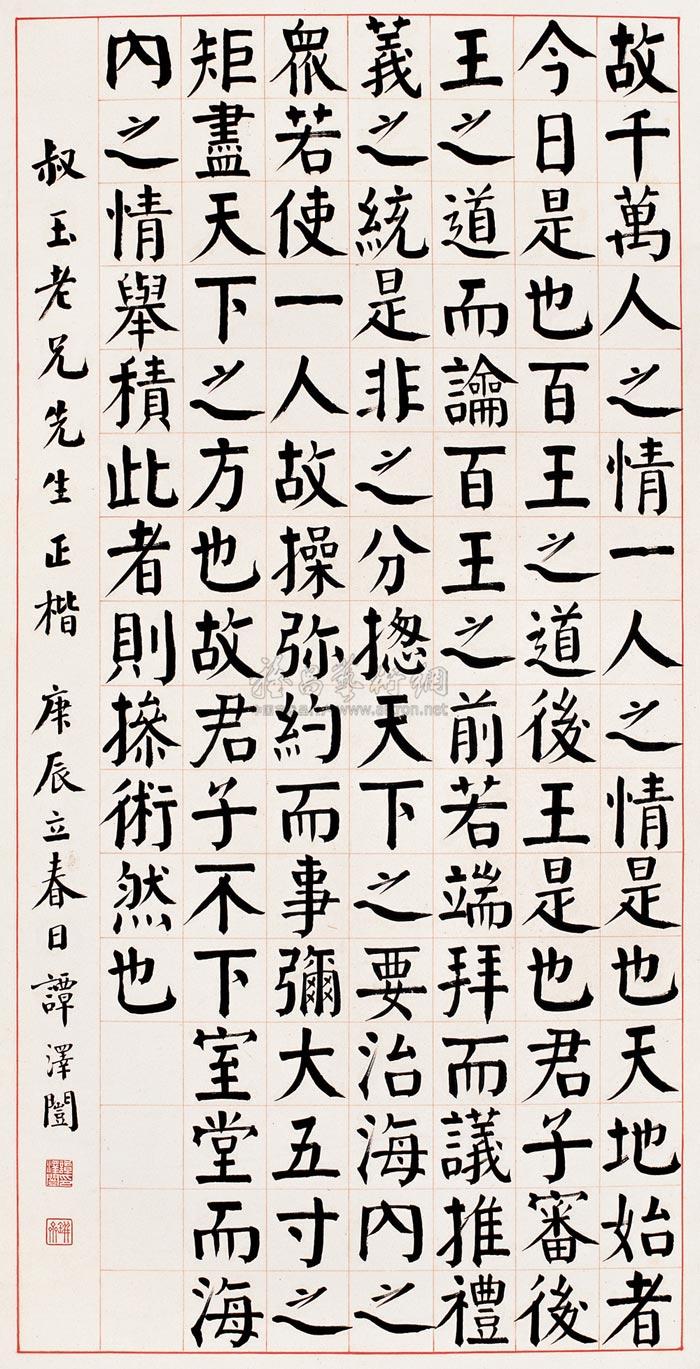 故千萬人之情一人之情是也天地始者
今日是也百王之道後王是也君子審後
王之道而論百王之前若端拜而議推禮
義之統是非之分揔天下之要治海內之
眾若使一人故操弥約而事彌大五寸之
矩盡天下之方也故君子不下室堂而海
內之情舉積此者則摻術然也
叔玉老兄先生正楷 庚辰立春日譚澤闓
雅昌藝術網
www.artron.net